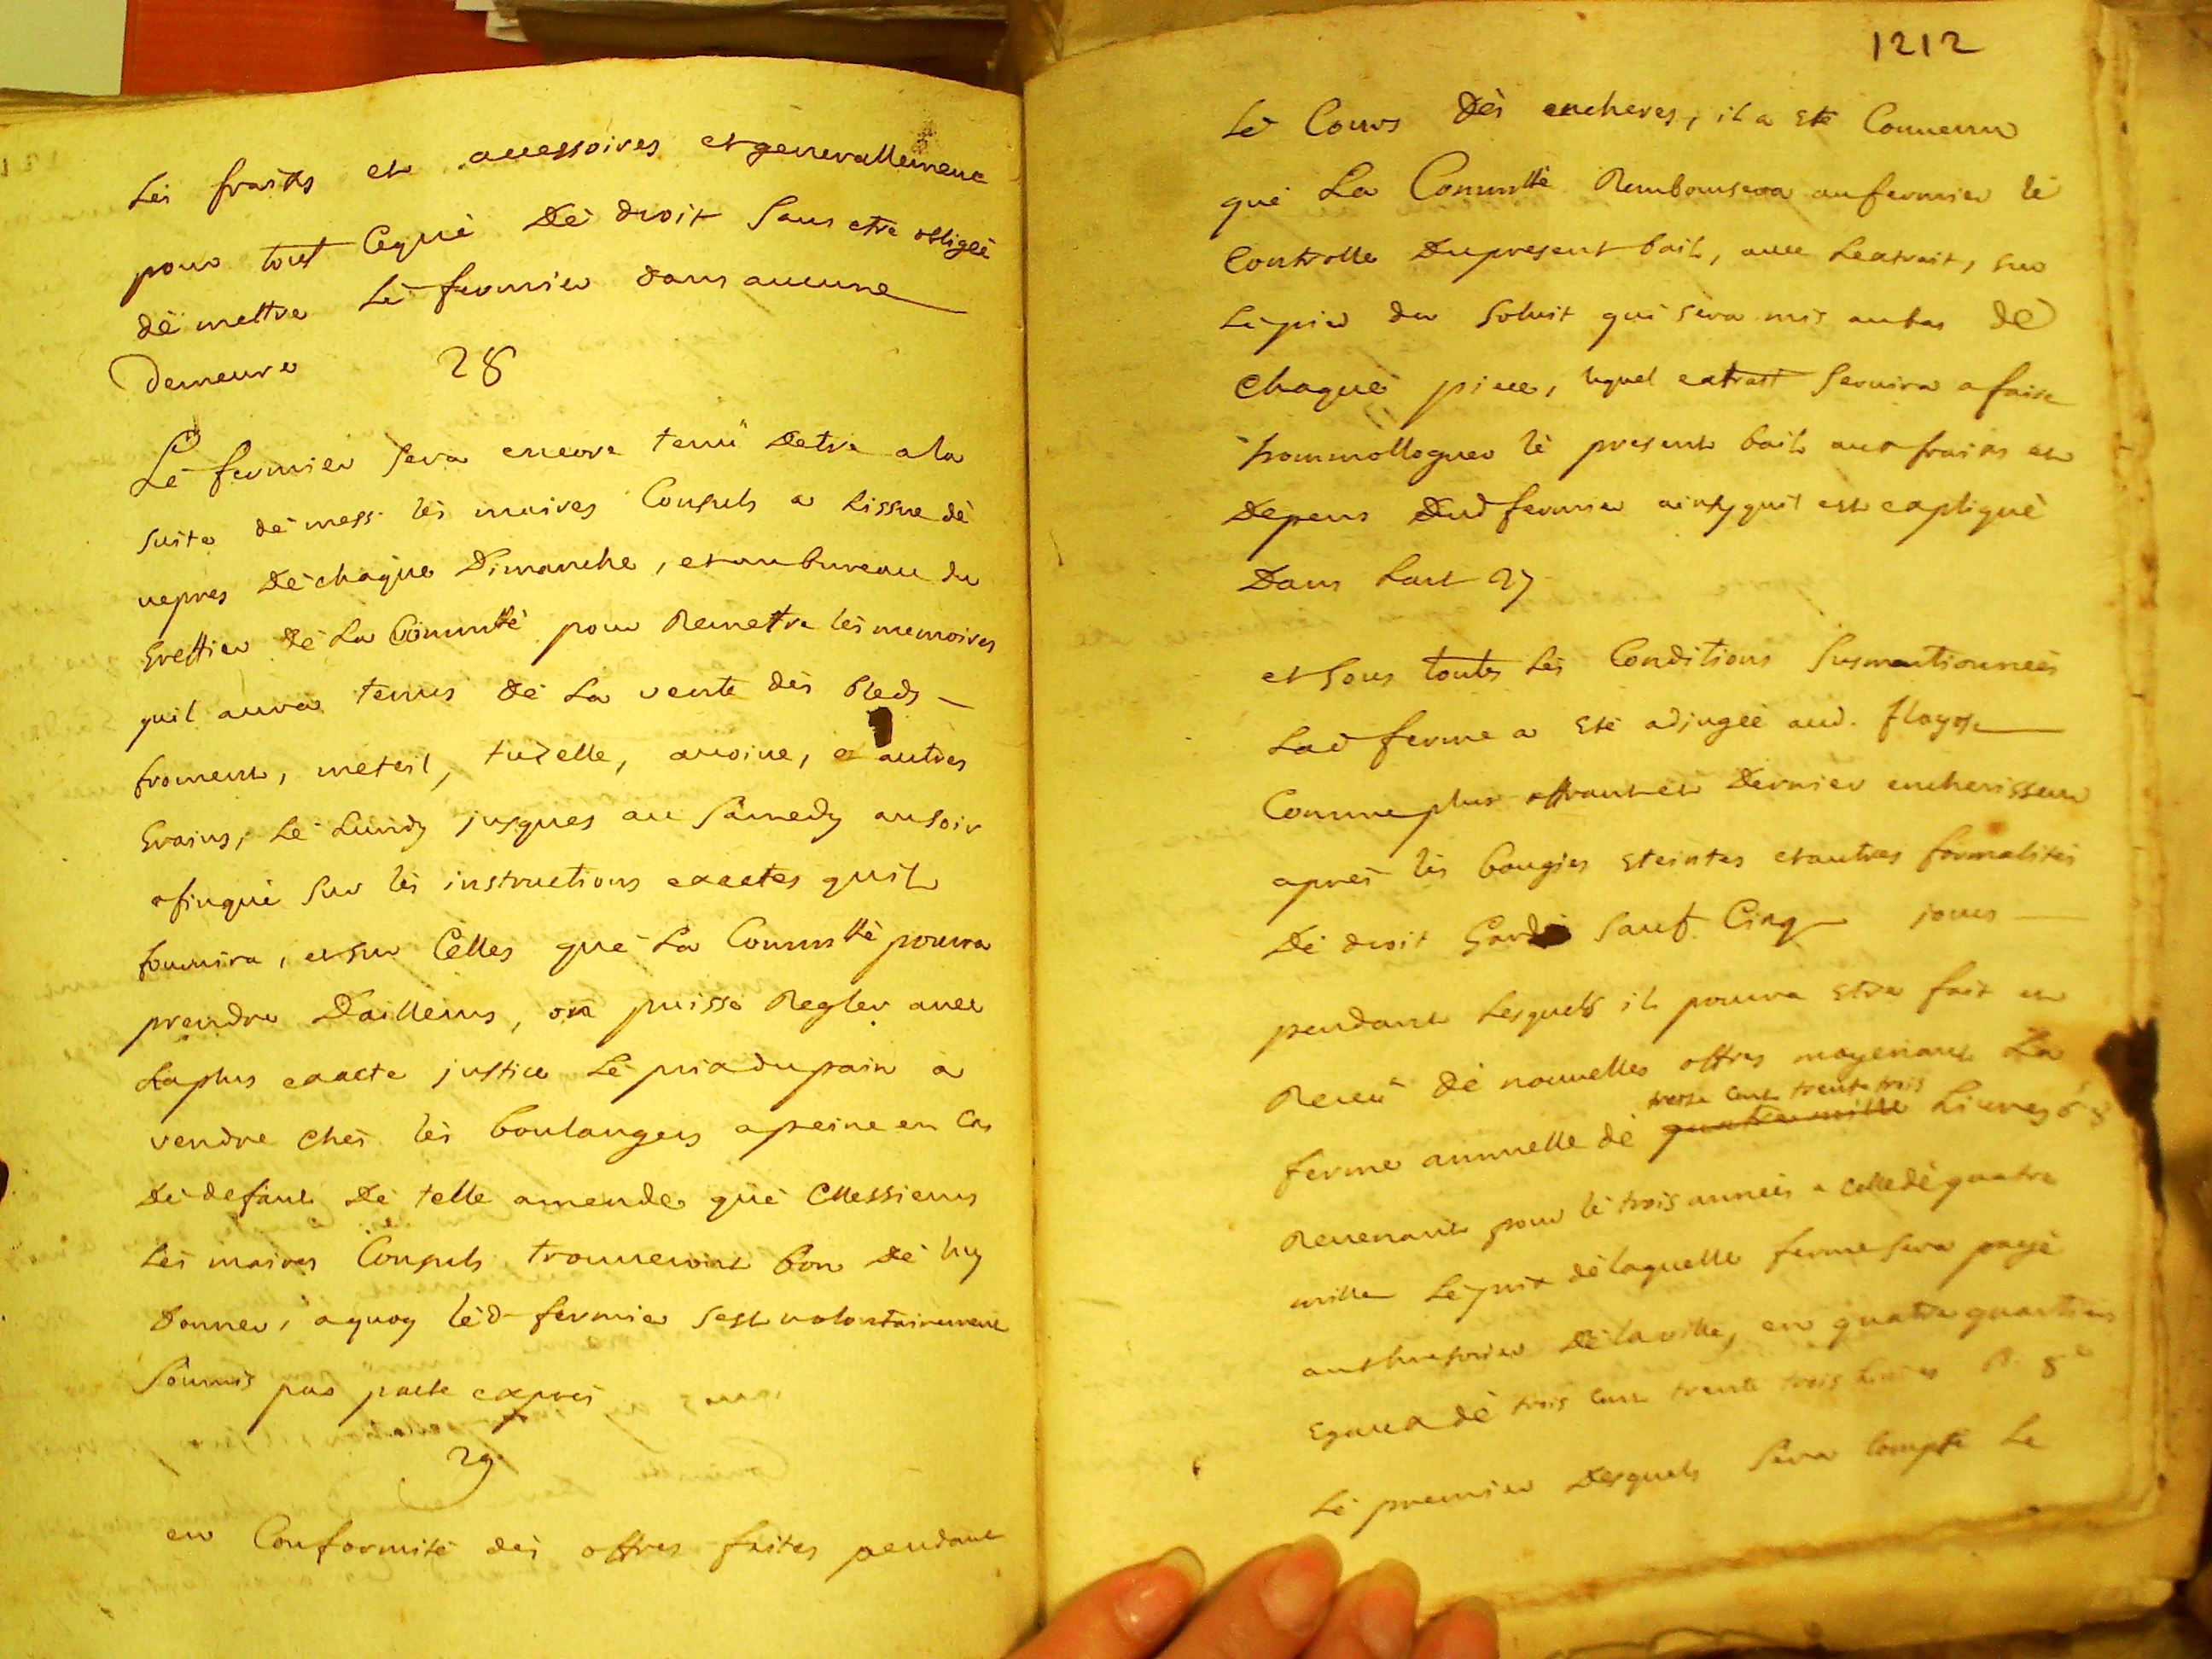 Lés fraits et accessoires et generallement
pour tout Céqué Dé droit Sans etre obligéé
dé mettre Lé fermier dans aucune
Demeure 28
Lé fermier Sera encore tenu Detre a la
suite dé mess. lés maires Consuls a Lissue dé
vepres Dé chaque Dimanche, et au bureau du
Greffier Dé La Commtté pour Remettre lés memoires
quil aura tenus Dé La vente dés bleds
froment, méteil, tuzelle, avoine, et autres
Grains, Lé Lundy jusques au Samedy au Soir
afinqué Sur lés instructions exactes quil
fournira, et sur Celles qué La Commtté pourra
prendre Dailleurs, on puisse Regler avec
La plus exacte justice Lé prix du pain a
vendre chés lés boulangers a peine en Cas
Dé defaut Dé telle amende qué Messieurs
Lés maires Consuls trouveront bon Dé luy
Donner, a quoy léd fermier sest volontairement
Soumis par pacte exprés
29
en Conformité dés offres faites pendant
1212
Lé Cours Dés encheres, il a eté Convenu
qué La Commtté Remboursera au fermier lé
Controlle Du present bail, avec Lextrait, sur
Lé pied du Soluit qui sera mis au bas dé
Chaqué piece, léquel extrait Servira a faire
hommologuer lé present bail aux frais et
Depens Dud fermier ainsy quil est expliqué
Dans Lart 27
et Sous toutes Lés Conditions Susmentionnéés
Lad ferme a eté adjugéé aud. flayosc
Comme plus offrant et Dernier encherisseur
aprés lés bougies eteintes et autres formalités
Dé droit Gardé Sauf Cinq jours
pendant Lesquels il pourra etre fait et
Receu dé nouvelles offres moyenant La
treze cent trente trois
ferme annuelle dé quatre mille Livres 6 s 8
Revenant pour lé trois annéés a celle dé quatre
mille Lé prix dé laquelle ferme sera payé
au thresorier Dé la ville, en quatre quartiers
Egaux dé trois cent trente trois Livres
Lé premier Desquels Sera Compté Le